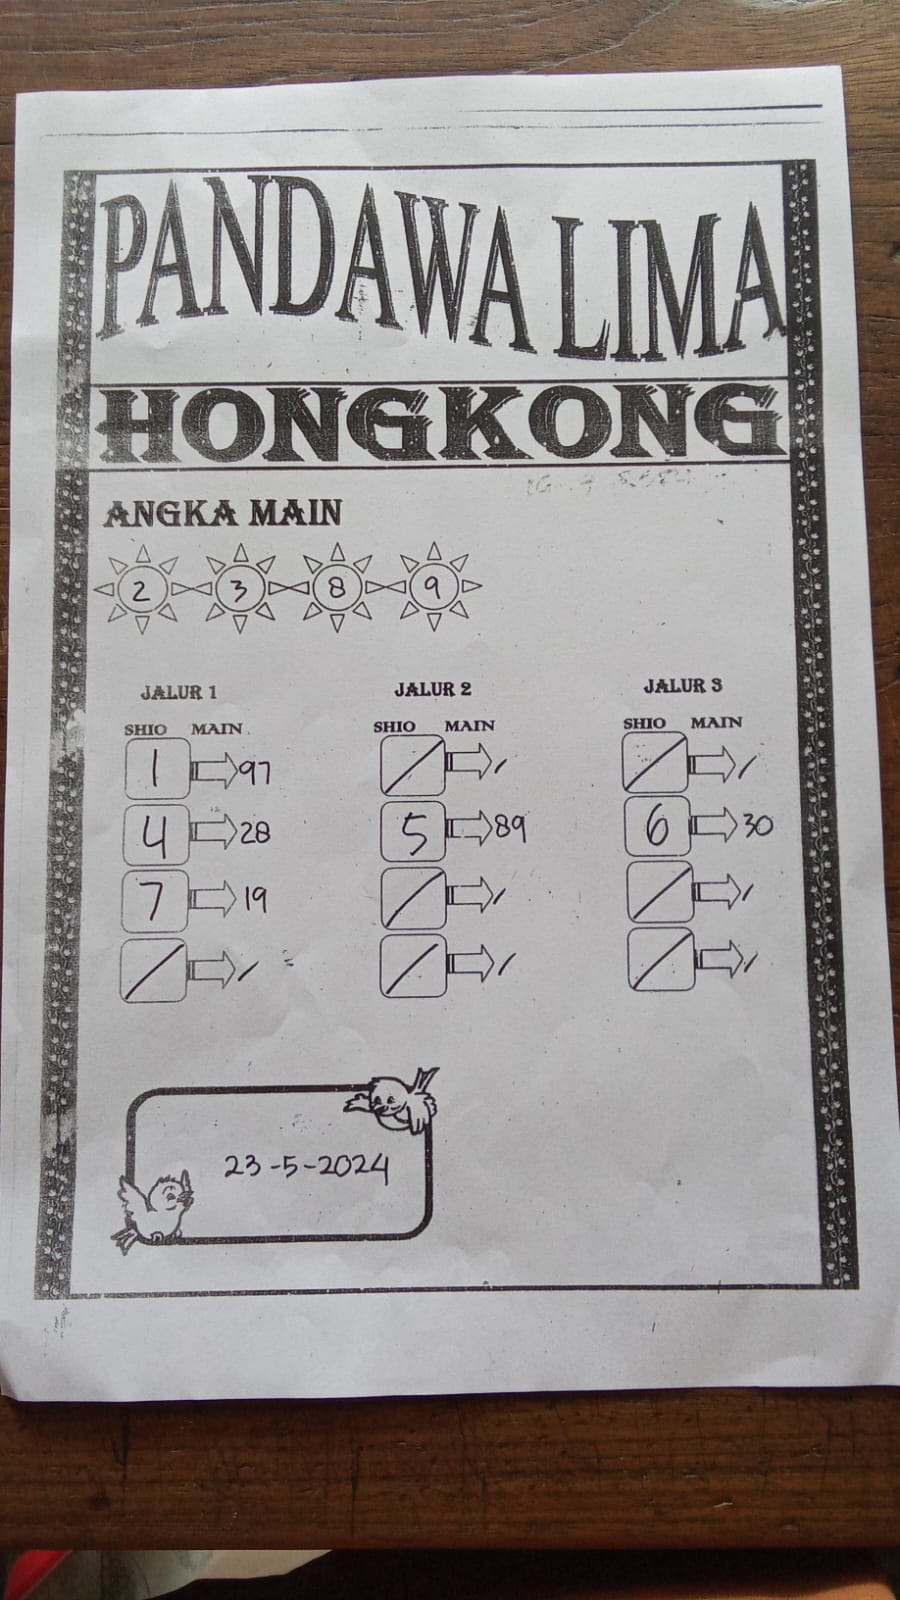 PANDAWA LIMA
HONGKONG
ANGKA MAIN
2 3 8 9
JALUR 1 JALUR 2 JALUR 3
SHIO MAIN SHIO MAIN SHIO MAIN
1 97 / / / /
4 28 5 89 6 30
7 19 / / / /
/ / / / / /
23-5-2024